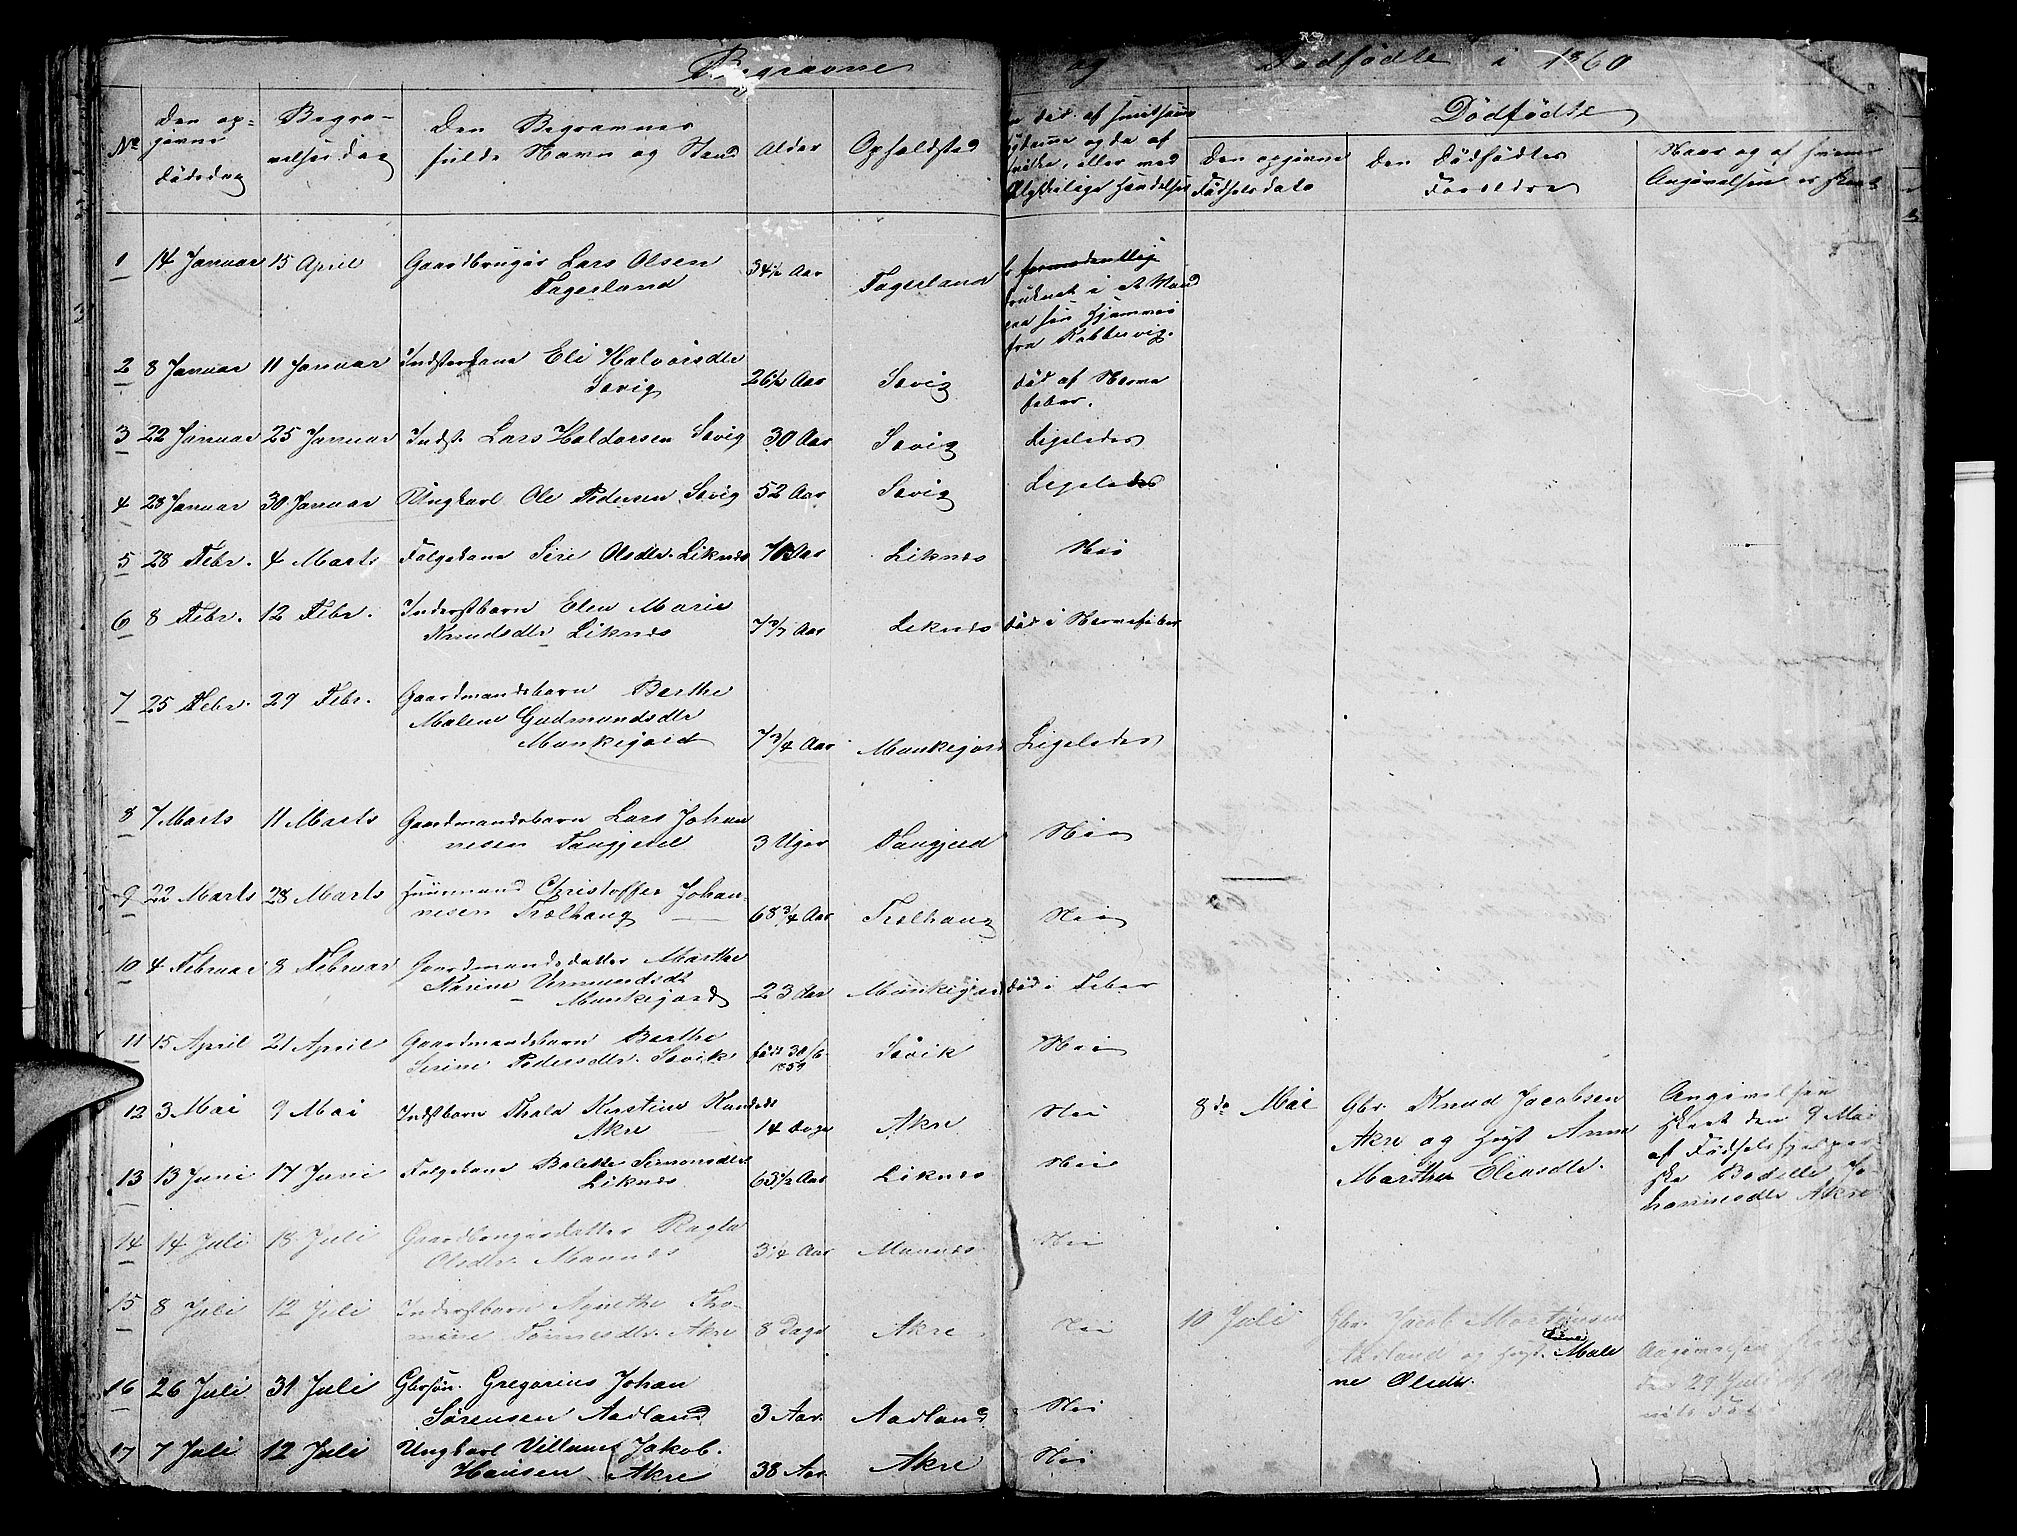 Begravne og Dødfødte i 1860
Dødfødte
No
Den op=
givne
Dødsdag
Begra-
velsesdag
Den Begravnes
fulde Navn og Stand
Alder
Opholdsted
død af smitsom
og da af
eller ved
ulykkelige Hændelser
Den opgivne
Fødselsdato
Den Dødfødtes
Forældre
Naar og af hvem
Angivelsen er skeet
1 14 Januar 15 April Gaardbruger Lars Olsen 34 1/2 Aar
Fagerland Fagerland
formodentlig
druknet i et Vand
paa sin Hjemvei
fra Rabbesvig.
2 8 Januar 11 Januar Inderstkone Eli Halvorsdtr
Sævig 26 1/2 Aar Sævig død af Nerve
feber.
3 22 Januar 25 Januar Indst. Lars Haldorsen Sævig 30 Aar Sævig Ligeledes
4 28 Januar 30 Januar Ungkarl Ole Pedersen Sævig 52 Aar Sævig Ligeledes
5 28 Febr. 4 Marts Følgekone Siri Olsdtr. Liknes Aar Liknes Nei
6 8 Febr. 12 Febr. Inderstbarn Elen Marie
Knudsdtr Liknes Aar Liknes død i Nervefeber
7 25 Febr. 29 Febr. Gaardmandsbarn Berthe
Malene Gudmundsdtr
Munkejord 7 3/4 Aar Munkejord Ligeledes
8 7 Marts 11 Marts Gaardmandsbarn Lars Johan
nesen Tangjerd 3 Uger Tangjerd Nei
9 22 Marts 28 Marts Huusmand Christoffer Johan-
nesen Trælhaug 68 3/4 Aar Trælhaug Nei
10 4 Februar 8 Februar Gaardmandsdatter Marthe
Karine Vermundsdt
Munkejord 23 Aar Munkejord død i Feber
11 15 April 21 April Gaardmandsbarn Berthe
Serine Pedersdtr. Sævik født 30/6 1859 Sævik Nei
12 3 Mai 9 Mai Indstbarn Thala Kirstine Knudsdt
Akre 14 Dage Akre Nei
8de Mai Gbr. Knud Jacobsen
Akre og Hust Anne
Marthe Eliasdtr.
Angivelsen
skeet den 9 Mai
af Fødselshjelper-
ske Bodelle Jo-
hannesdtr Akre
13 13 Juni 17 Juni Følgekone Bolette Simonsdtr
Liknes 63 1/2 Aar Liknes Nei
14 14 Juli 18 Juli Gaardbrugerdatter Ragla
Olsdtr. Mannes 3 1/4 Aar Mannes Nei
15 8 Juli 12 Juli Inderstbarn Agnethe Tho-
mine Tønnesdtr. Akre 8 Dage Akre Nei
10 Juli Gbr. Jacob Mortensen
Aadland og Hust. Male
ne Olsdtr.
Angivelsen skeet
den 29 Juli af
16 26 Juli 31 Juli Gbrsøn. Gregorius Johan
Sørensen Aadland 3 Aar Aadland Nei
17 7 Juli 12 Juli Ungkarl Villum Jakob
Hansen Akre 38 Aar Akre Nei